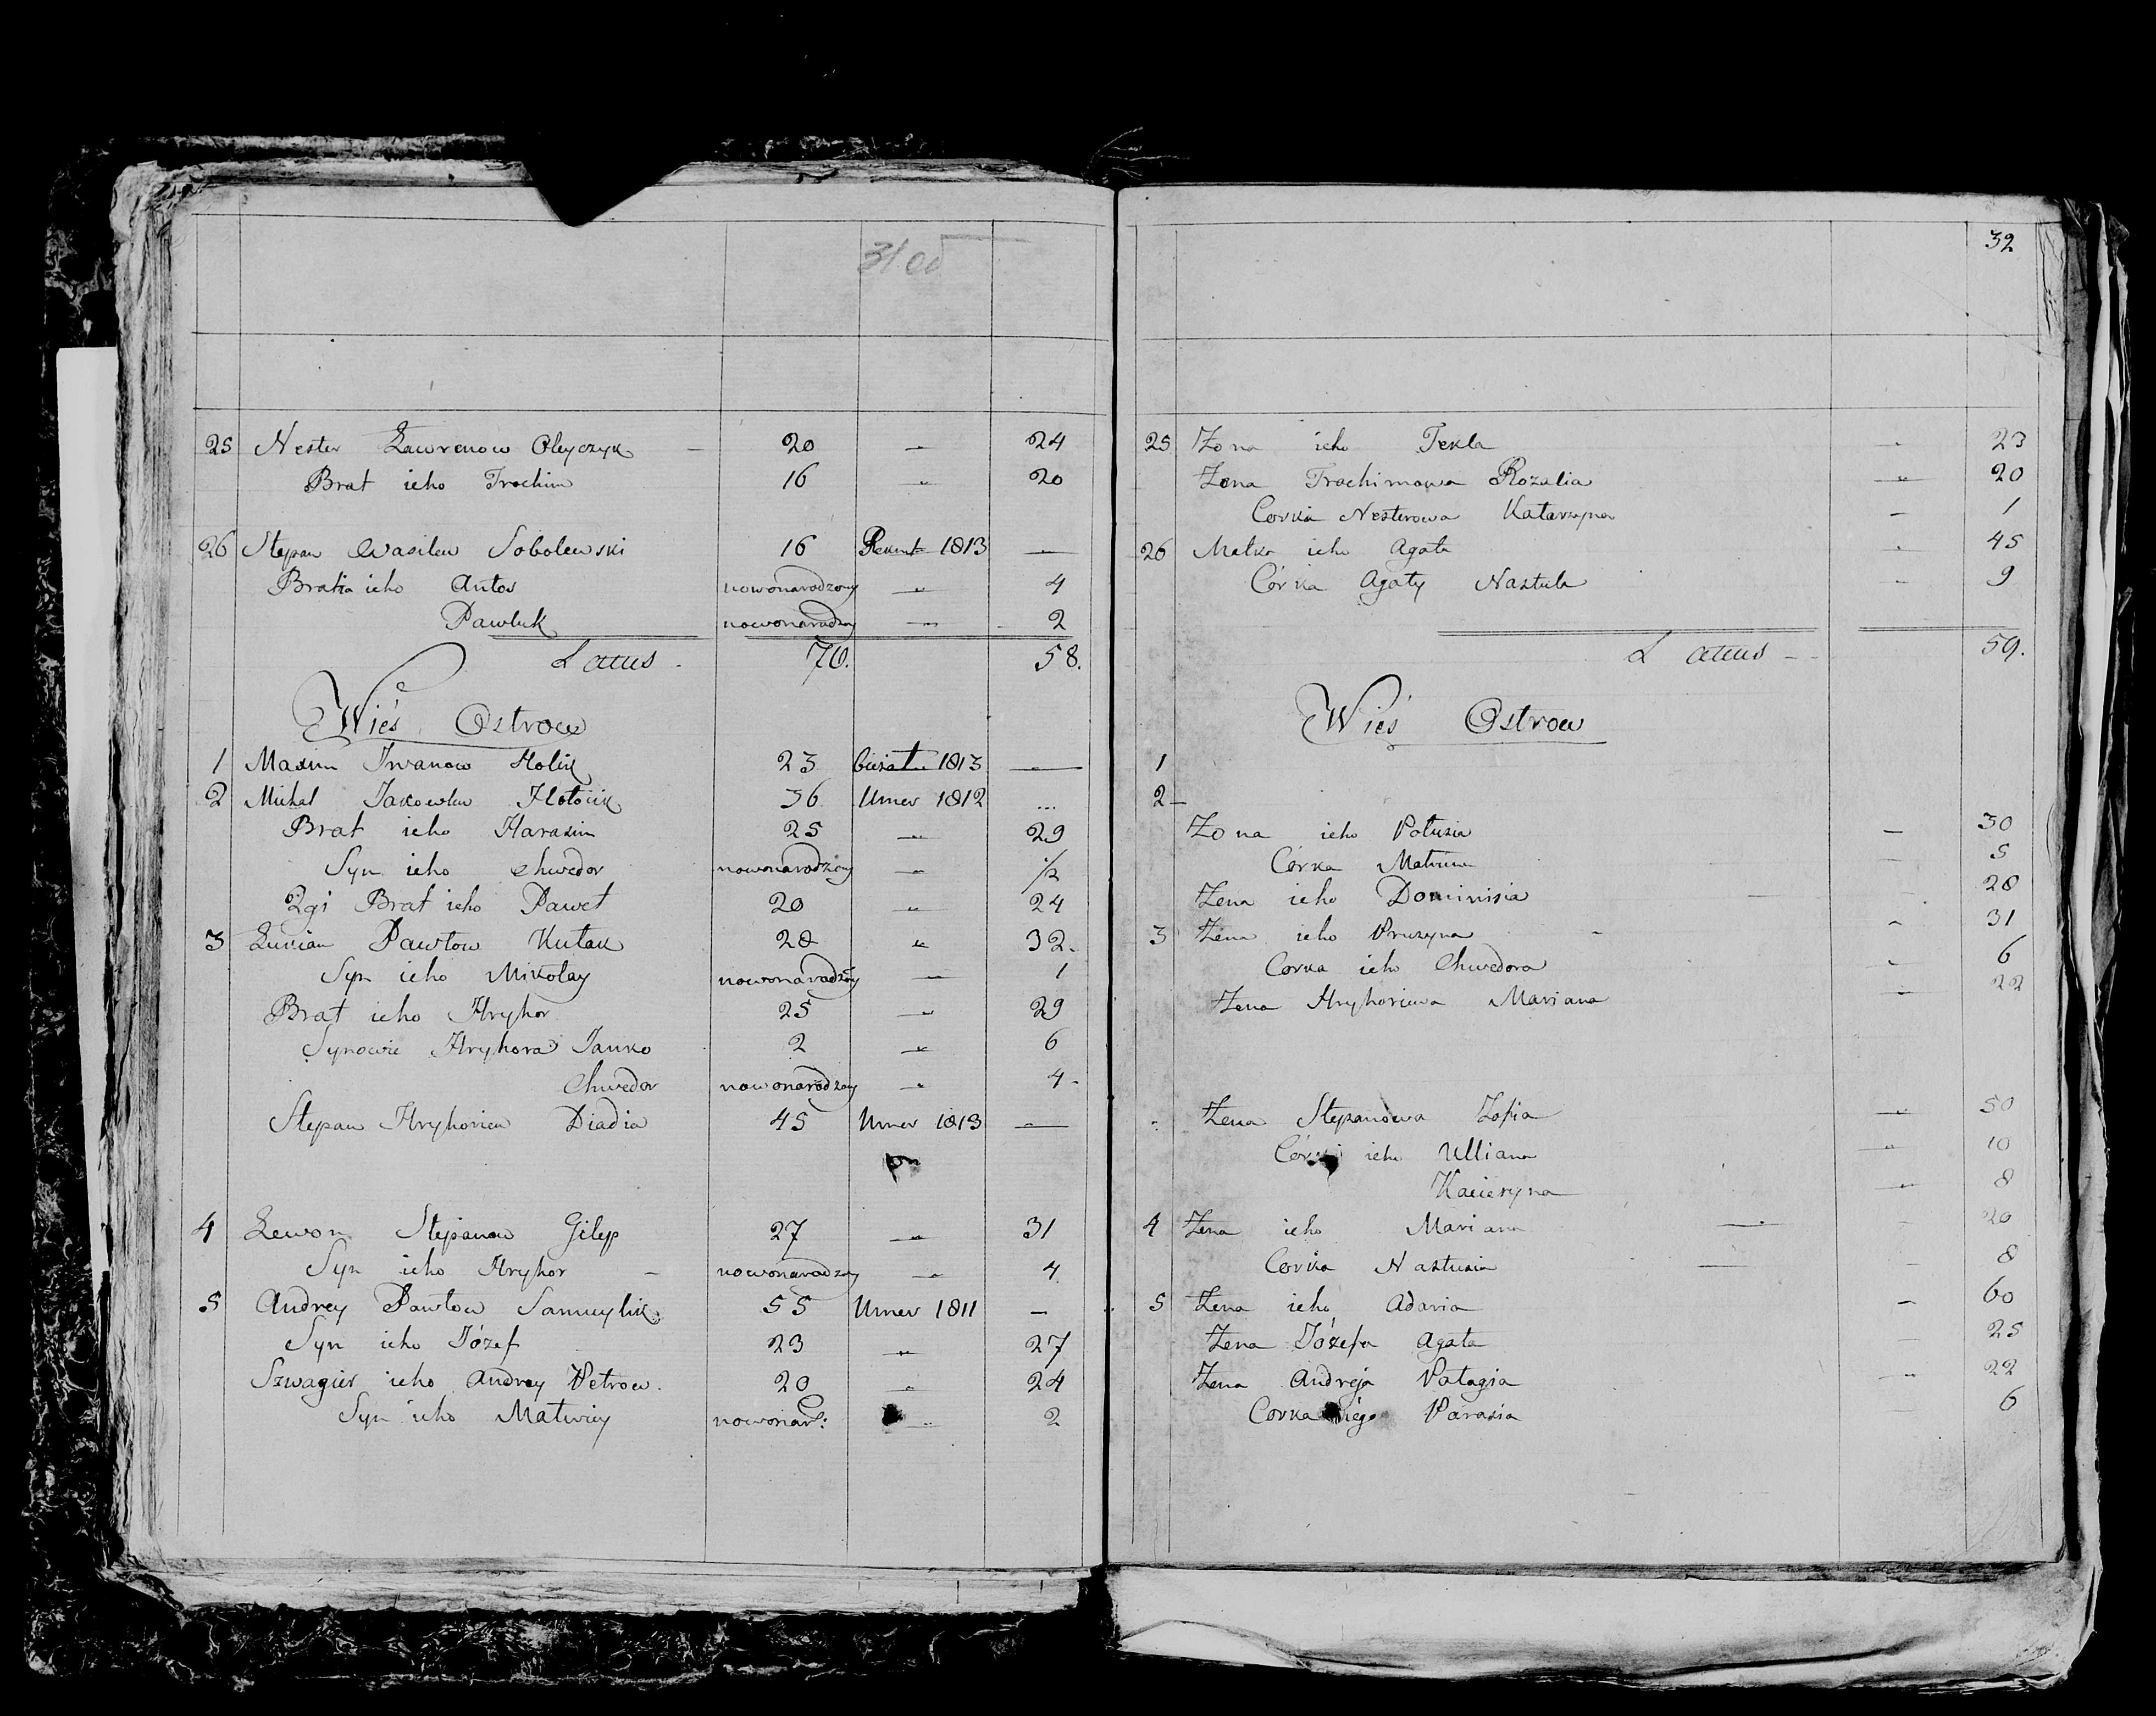 31 об
25 Nester Ławrenow Oleyczyk - 20 - 24
Brat ieho Trochim 16 - 20
26 Stepan Wasilew Sobolewski 16 Rekrut 1813 -
Bratia ieho Antos nowonarodzony - 4
Pawluk nowonarodzony - 2
Latus - 70. 58.
Wieś Ostrow
1 Maxim Iwanow Holik 23 bieżał 1813 -
2 Michał Jakowlew 36 Umer 1812 ...
Brat ieho Haraxim 25 - 29
Syn ieho Chwedor nowonarodzony - 1/2
2gi Brat ieho Paweł 20 - 24
3 Łukian Pawłow Kułak 28 - 32.
Syn ieho Mikołay nowonarodzony - 1
Brat ieho Hryhor 25 - 29
Synowie Hryhora Janko 2 - 6
Chwedor nowonarodzony - 4-
Stepan Hryhoriew Diadia 45 Umer 1813 -
4 Lewon Stepanow Gilep 27 - 31
Syn ieho Hryhor - nowonarodzony - 4
5 Andrey Pawłow Samuylik 55 Umer 1811 -
Syn ieho Józef 23 - 27
Szwagier ieho Andrey Petrow. 20 - 24
Syn ieho Matwiey nowonar: - 2
32
25 Zona ieho Tekla - 23
Zona Trochimowa Rozalia - 20
Corka Nesterowa Katarzyna - 1
26 Matka ieho Agata - 45
Córka Agaty Nastula - 9
Latus - 59.
Wieś Ostrow
1
2 -
Zona ieho Połusia - 30
Córka 5
Zena ieho Dominisia - 28
3 Zena ieho Pruzyna - 31
Corka ieho Chwedora - 6
Zena Hryhoriewa Mariana - 22
Zena Stepanowa Zofia - 50
Córki ieho Ulliana - 10
Kacieryna - 8
4 Zena ieho Mariana - 20
Corka Nastusia - 8
5 Zena ieho Adaria - 60
Zena Józefa Agata 25
Zena Andreja Pałagia - 22
Corka iégo Paraxia 6